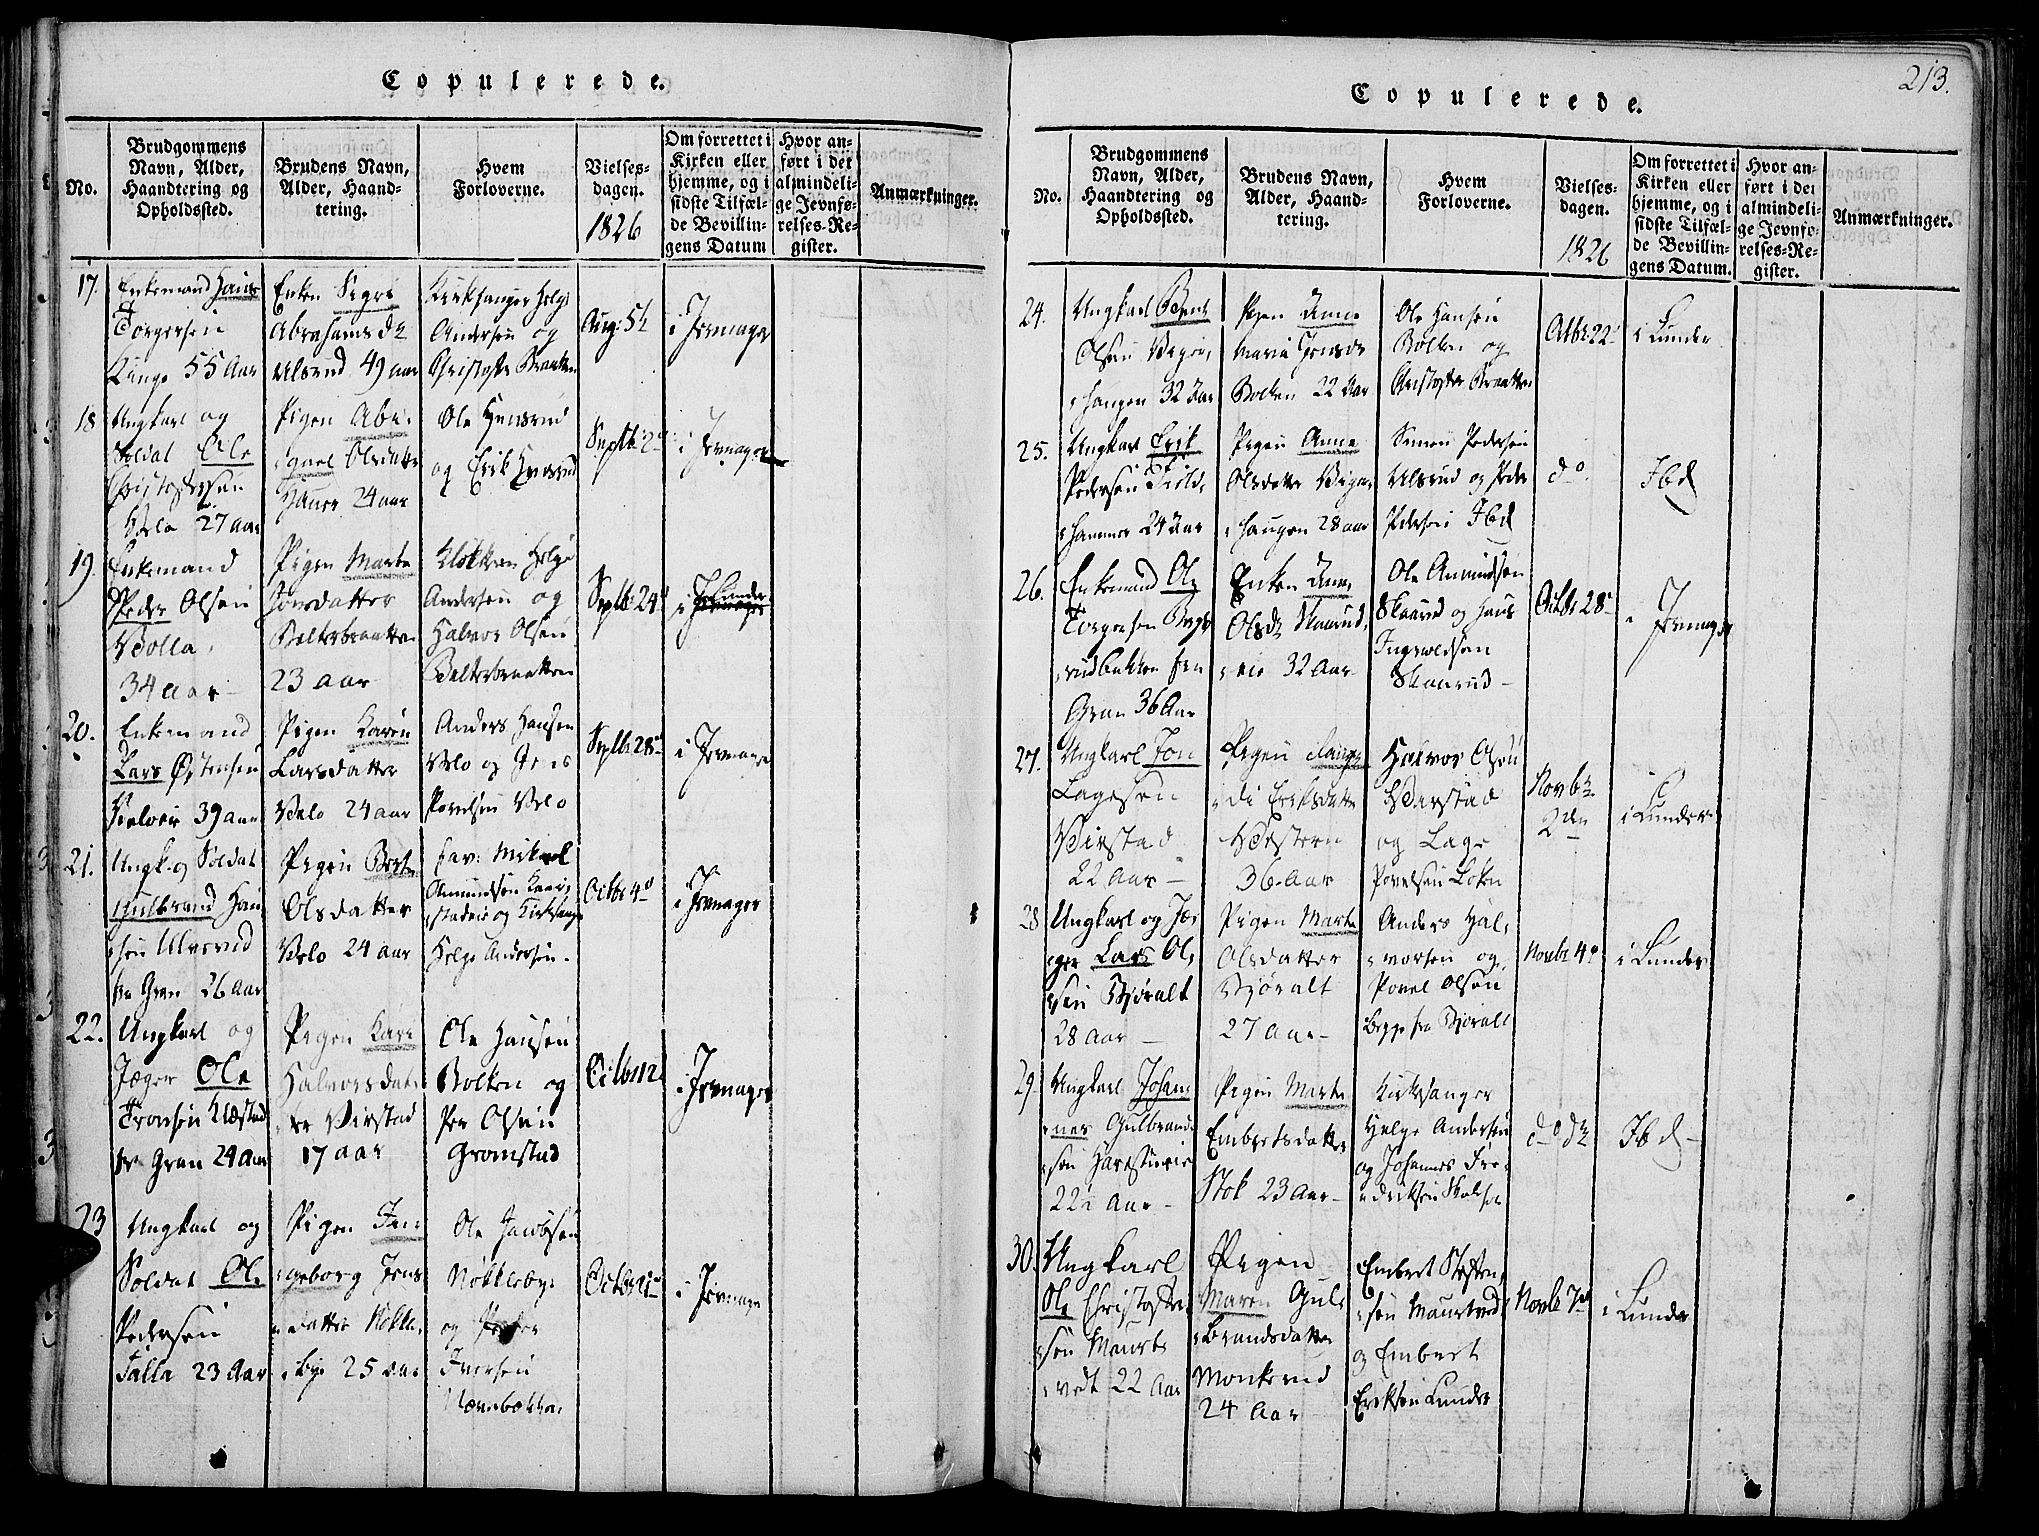 Copulerede.
No.
Brudgommens
Navn, Alder,
Haandtering og
Opholdssted.
Brudens Navn,
Alder, Haand-
tering.
Hvem
Forloverne.
Vielses-
dagen.
1826
Om forrettet i
Kirken eller
hjemme, og i
sidste Tilfæl-
de Bevillin-
gens Datum
Hvor an-
ført i det
almindeli-
ge Jevnfø-
relses-Re-
gister.
Anmærkninger.
17.
Enkemand Hans
Torgersen
55 Aar
Enken Sigri
Abrahamsdr
Ulsrud 49 aar
Kirksanger Helge
Andersen og
Christopher Braaten
Aug: 5t
i Jevnager
18
Ungkarl og
Soldat Ole
Christophersen
Velo 27 aar
Pigen Abi-
gael Olsdatter
Hauer 24 aar
Ole Hensrud
og Erik Hensrud
Septbr 2
i Jevnager
19.
Enkemand
Peder Olsen
Bolla
34 aar
Pigen Marte
Jonsdatter
Belterbraatten
23 aar
Klokkeren Helge
Andersen og
Halvor Olsen
Belterbraatten
Septbr 24
i Lunder
20.
Enkemand
Lars Østensen
39 aar
Pigen Karen
Larsdatter
Velo 24 aar
Anders Hansen
Velo og Jens
Povelsen Velo
Septbr 28
i Jevnager
21.
Ungk. og Soldat
Gulbrand Han-
sen Ulvsrud
fra Gran 26 Aar
Pigen Berte
Olsdatter
Velo 24 aar
Mikael
Amundsen
og Kirksanger
Helge Andersen.
Octbr 4
i Jevnager
22.
Ungkarl og
Jæger Ole
Tronsen Klæstad
fra Gran 24 Aar
Pigen Kari
Halvorsdat-
ter Virstad
17 aar
Ole Hansen
Bolken og
Per Olsen
Gromstad
Octbr 12
i Jevnager
23
Ungkarl og
Soldat Ole
Pedersen
Talla 23 Aar
Pigen In-
geborg Jens
datter Nøkle-
bye 25 Aar
Ole Jacobsen
Nøklebye
og Peder
Iversen
Octbr 21
i Jevnager
213.
Copulerede.
No.
Brudgommens
Navn, Alder,
Haandtering og
Opholdssted.
Brudens Navn,
Alder, Haand-
tering.
Hvem
Forloverne.
Vielses-
dagen.
1826
Om forrettet i
Kirken eller
hjemme, og i
sidste Tilfæl-
de Bevillin-
gens Datum.
Hvor an-
ført i det
almindeli-
ge Jevnfø-
relses-Re-
gister.
Anmærkninger.
24.
Ungkarl Bent
Olsen
haugen 32 Aar
Pigen Anne
Maria Jensdr
Bolken 22 Aar
Ole Hansen
Bolken og
Christopher Braatten
Octbr 22
i Lunder
25.
Ungkarl Erik
Pedersen Field-
hammer 24 Aar
Pigen Anne
Olsdatter
haugen 28 aar
Simen Pedersen
Ulsrud og Peder
Pedersen Ibd
do.
Ibd
26.
Enkemand Ole
Torgersen
rudbakken fra
Gran 36 Aar
Enken Anne
Olsdr Skaarud-
eie 32 Aar
Ole Amundsen
Skaarud og Hans
Ingevoldsen
Skaarud
Octbr 28
i Jevnager
27.
Ungkarl Jon
Lagesen
Virstad
22 Aar
Pigen Range-
di Eriksdatter
36 Aar
Halvor Olsen
og Lage
Povelsen Løken
Novbr
2den
i Lunder
28
Ungkarl og Jæ-
ger Lars Ol-
sen Bjøralt
28 aar
Pigen Marte
Olsdatter
Bjøralt
27 Aar
Anders Hal-
vorsen og
Povel Olsen
begge fra Bjøralt
Novbr 4
i Lunder
29.
Ungkarl Johan-
nes Gulbrand-
sen
22 Aar
Pigen Marte
Embertsdatter
Stok 23 Aar
Kirksanger
Helge Andersen
og Johannes Fre-
driksen
do dr
Ibd
30.
Ungkarl
Ole Christopher-
sen Maurt-
vedt 22 Aar
Pigen
Maren Gul-
brandsdatter
Monkerud
24 Aar
Embert Steffen-
sen Maurtved
og Embert
Eriksen Lunder
Novbr 7de
i Lunder